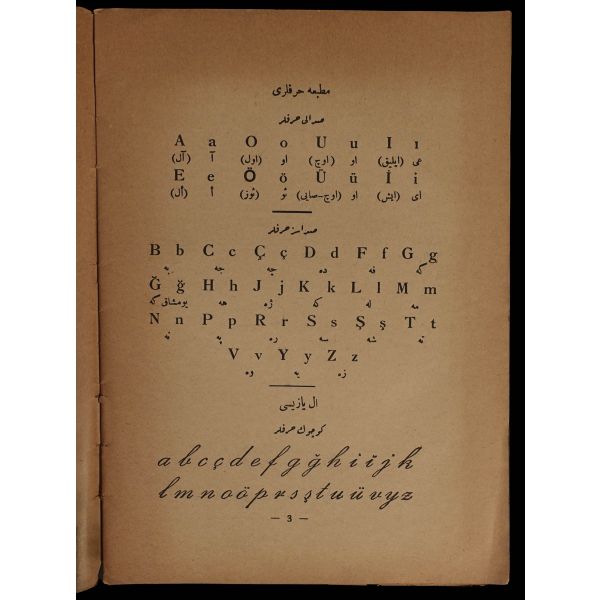 مطبعه حرفلری
صدالی حرفلر
A a O o U u I ı
(آل) آ (اول) او (اوچ) او (ایلیق) عی
E e Ö ö Ü ü İ i
(أل) أ (ئوز) ئو (اوچ-صایی) او (ایش) ای
صداسز حرفلر
B b C c Ç ç D d F f G g
به جه چه ده فه گه
Ğ ğ H h J j K k L l M m
یومشاق گه هه ژه كه له مه
N n P p R r S s Ş ş T t
نه په ره سه شه ته
V v Y y Z z
وه یه زه
ال یازیسی
كوچوك حرفلر
a b c ç d e f g ğ h i ı j k
l m n o ö p r s ş t u ü v y z
— 3 —